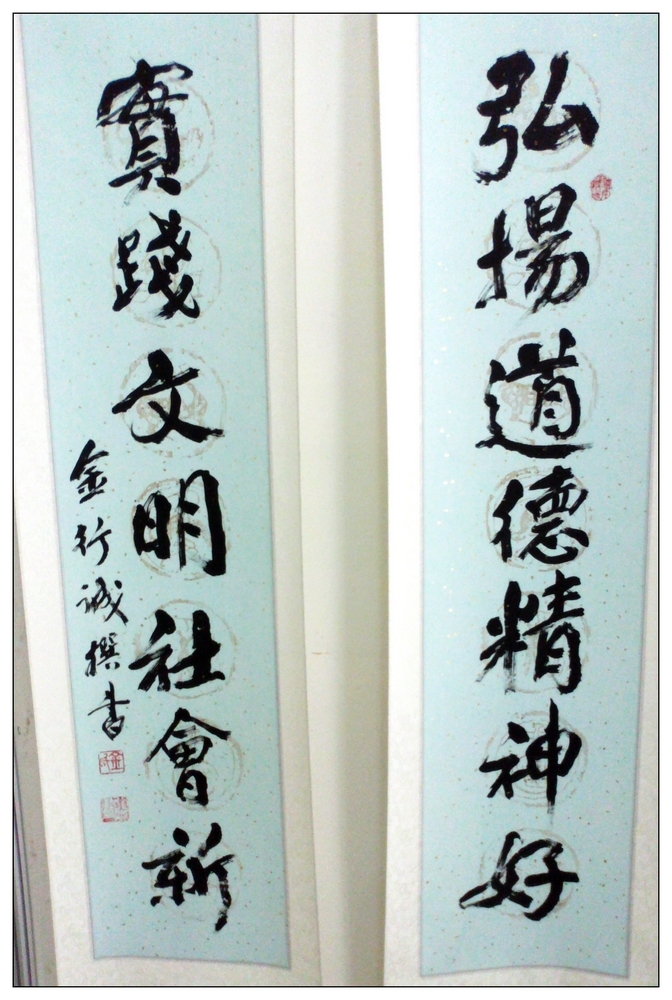 弘揚道德精神好
實踐文明社會新
金行誠撰書